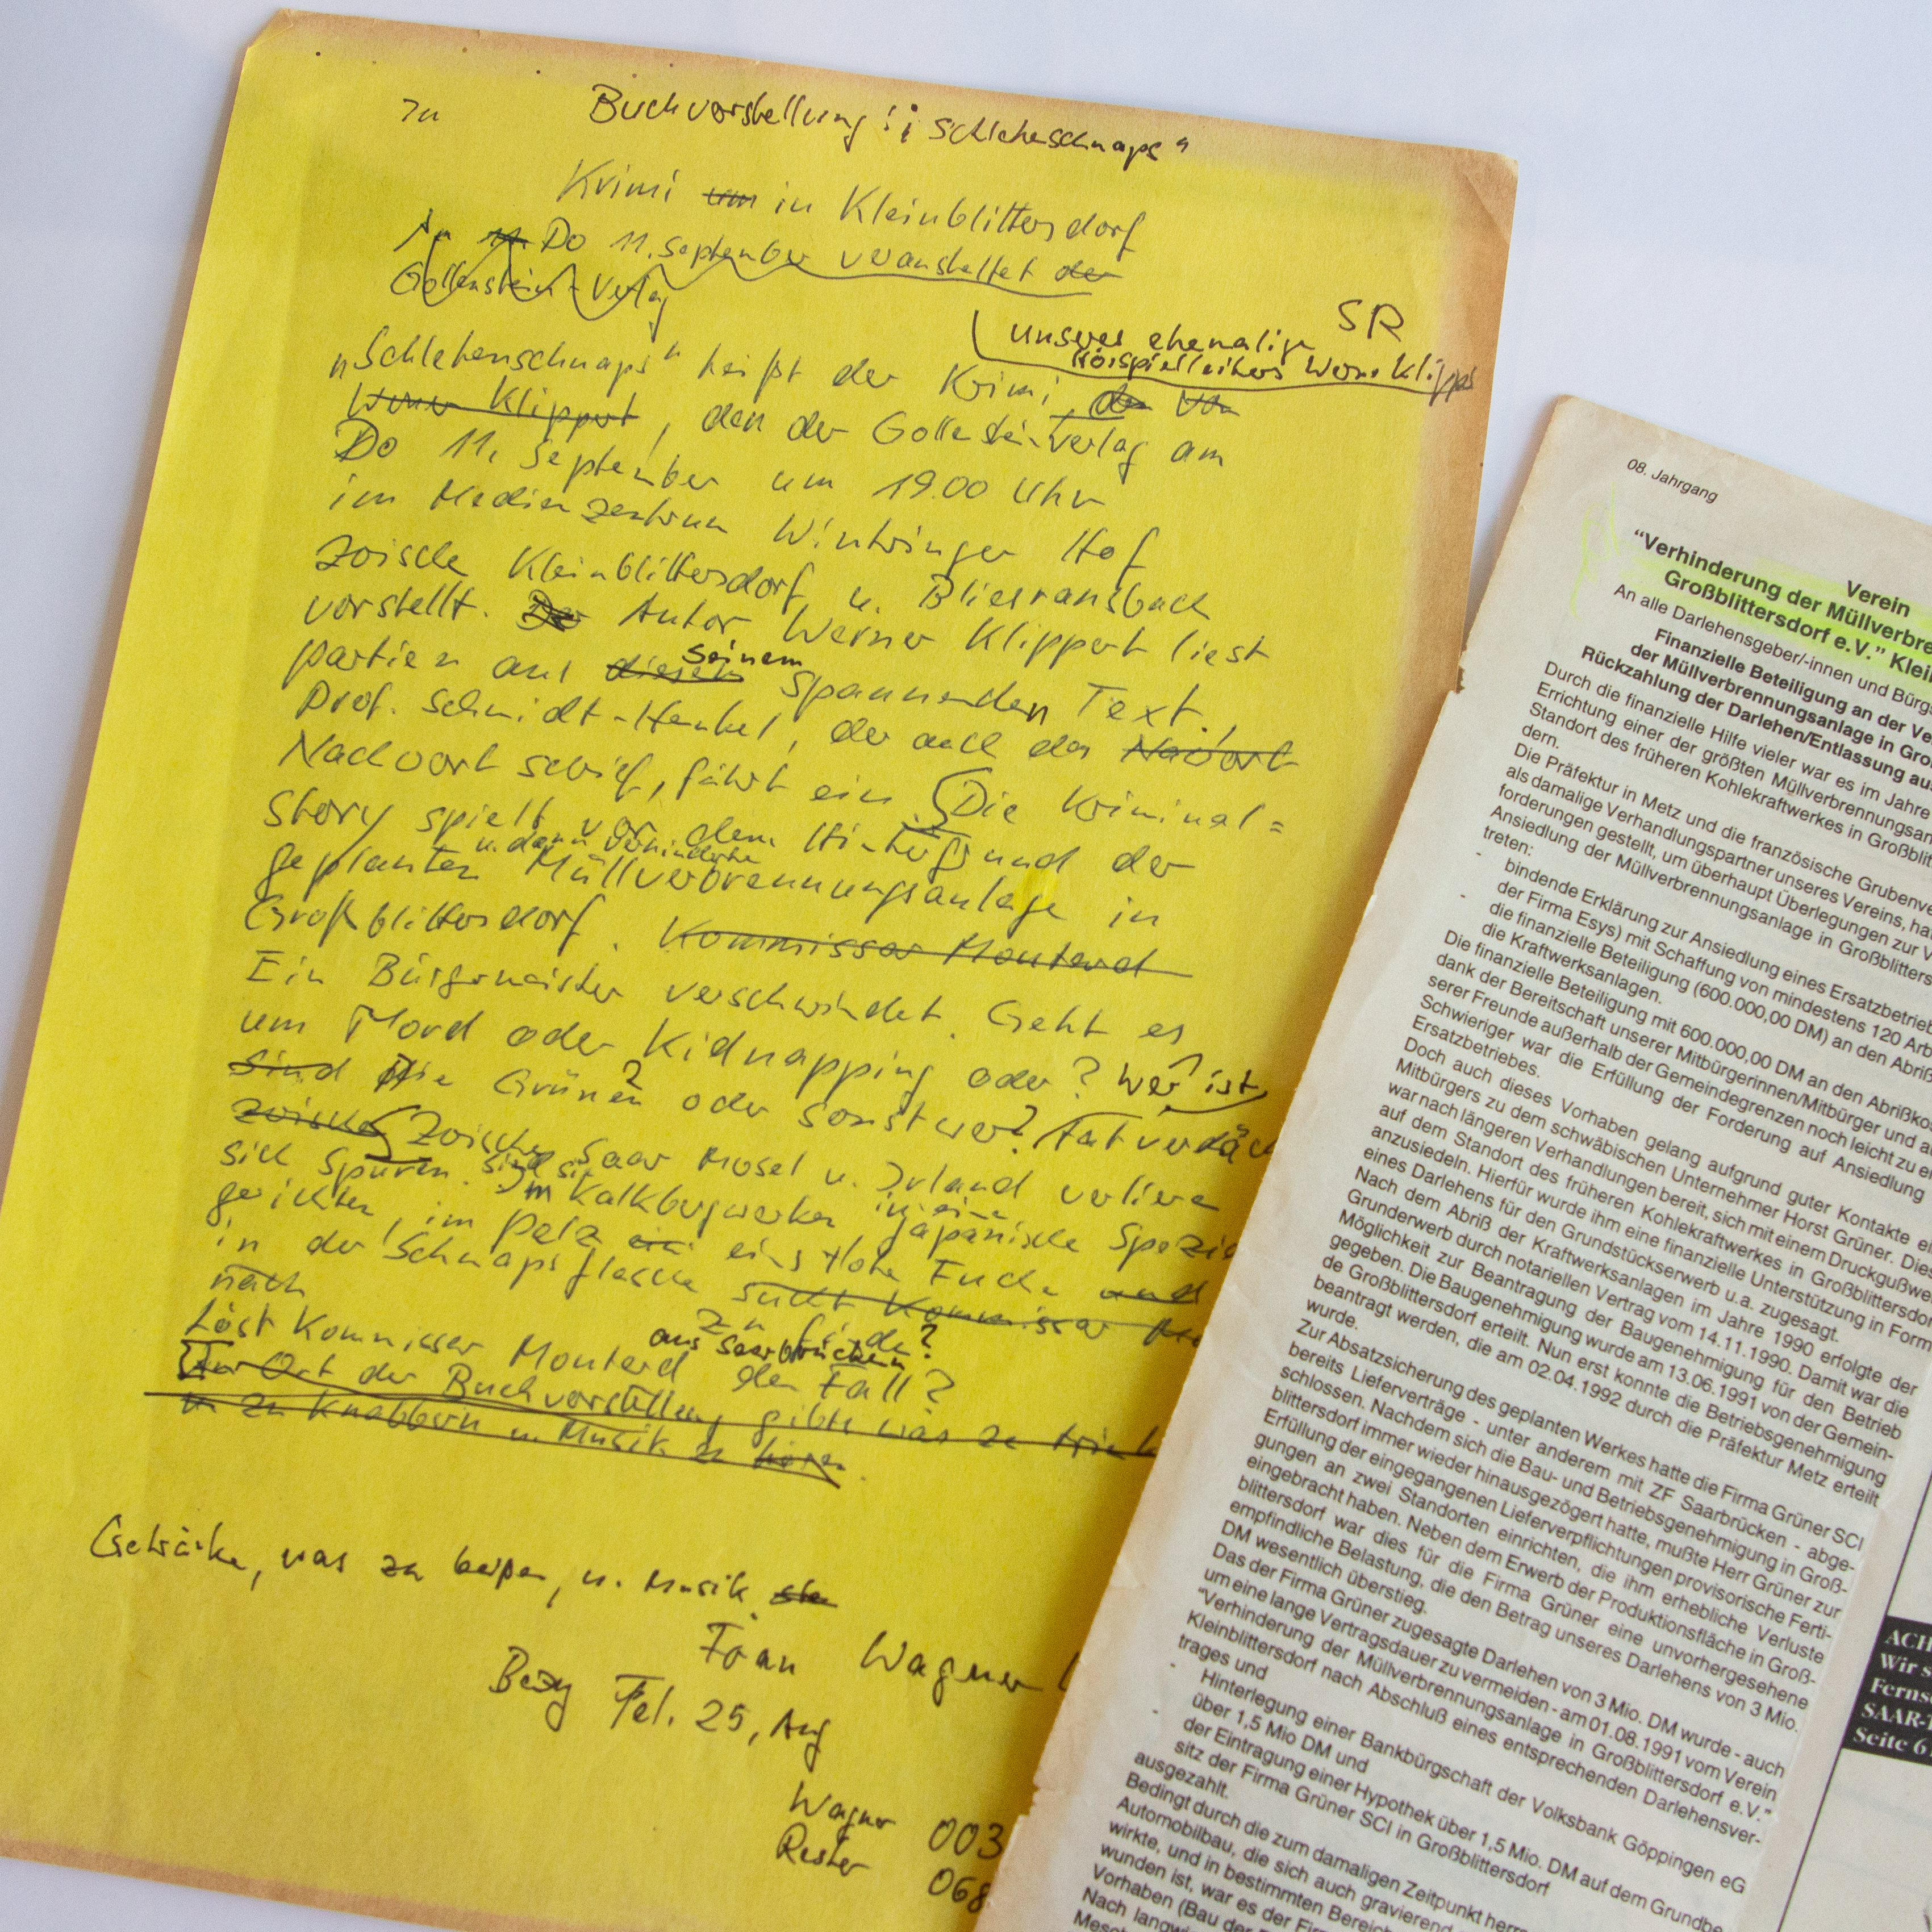 Buchvorstellung: "Schlehenschnaps"
Krimi um in Kleinblittersdorf
Do 11. September veranstaltet der
Gollenstein-Verlag
SR
unseres ehemalige
Hörspielleiters Werner Klippert
„Schlehenschnaps" heißt der Krimi, den von
Werner Klippert, den der Gollenstein Verlag am
Do 11. September um 19.00 Uhr
im Medienzentrum Wintringer Hof
zwische Kleinblittersdorf u. Bliesransbach
vorstellt. Der Autor Werner Klippert liest
seinem
partien aus diesem spannenden Text.
Prof. Schmidt-Henkel, der auch das Nachwort
Nachwort schrieb, führt ein. Die Kriminal=
story spielt vor dem Hintergrund der
u. dann verhinderte
geplanten Müllverbrennungsanlage in
Großblittersdorf. Kommissar Monterd
Ein Bürgermeister verschwindet. Geht es
um Mord oder Kidnapping oder? Wer ist
sind die Grünen oder sonstwer? Tatverdäc
zwischen Zwischen Saar Mosel u. Irland verliere
sich Spuren. Sind sie im Kalkbergwerken in eine japanische Spezia
gerichten, im Pelz eines tote Fuchs und
in der Schnapsflasche sucht Kommissar
nach zu finde?
aus Saarbrücken
Löst Kommissar Monterd den Fall?
Der Ort der Buchvorstellung gibts was zu trink
u zu Knabbern u. Musik zu hören.
Getränke, was zu beißen, u. Musik.
Fran Wagner
Tel. 25, Aug
Wagner 003
Rester 068
08. Jahrgang
Verein
"Verhinderung der Müllverbre
Großblittersdorf e.V." Klein
An alle Darlehensgeber/-innen und Bürg
Finanzielle Beteiligung an der Ve
der Müllverbrennungsanlage in Gro
Rückzahlung der Darlehen/Entlassung au
Durch die finanzielle Hilfe vieler war es im Jahre
Errichtung einer der größten Müllverbrennungsan
Standort des früheren Kohlekraftwerkes in Großblit
dern.
Die Präfektur in Metz und die französische Grubenve
als damalige Verhandlungspartner unseres Vereins, hat
forderungen gestellt, um überhaupt Überlegungen zur V
Ansiedlung der Müllverbrennungsanlage in Großblitters
treten:
- bindende Erklärung zur Ansiedlung eines Ersatzbetrieb
der Firma Esys) mit Schaffung von mindestens 120 Arb
- die finanzielle Beteiligung (600.000,00 DM) an den Abriß
die Kraftwerksanlagen.
Die finanzielle Beteiligung mit 600.000,00 DM an den Abrißko
dank der Bereitschaft unserer Mitbürgerinnen/Mitbürger und a
serer Freunde außerhalb der Gemeindegrenzen noch leicht zu e
Schwieriger war die Erfüllung der Forderung auf Ansiedlung
Ersatzbetriebes.
Doch auch dieses Vorhaben gelang aufgrund guter Kontakte ei
Mitbürgers zu dem schwäbischen Unternehmer Horst Grüner. Dies
war nach längeren Verhandlungen bereit, sich mit einem Druckgußwe
auf dem Standort des früheren Kohlekraftwerkes in Großblittersdor
anzusiedeln. Hierfür wurde ihm eine finanzielle Unterstützung in Form
eines Darlehens für den Grundstückserwerb u.a. zugesagt.
Nach dem Abriß der Kraftwerksanlagen im Jahre 1990 erfolgte der
Grunderwerb durch notariellen Vertrag vom 14.11.1990. Damit war die
Möglichkeit zur Beantragung der Baugenehmigung für den Betrieb
gegeben. Die Baugenehmigung wurde am 13.06.1991 von der Gemein-
de Großblittersdorf erteilt. Nun erst konnte die Betriebsgenehmigung
beantragt werden, die am 02.04.1992 durch die Präfektur Metz erteilt
wurde.
Zur Absatzsicherung des geplanten Werkes hatte die Firma Grüner SCI
bereits Lieferverträge - unter anderem mit ZF Saarbrücken - abge-
schlossen. Nachdem sich die Bau- und Betriebsgenehmigung in Groß-
blittersdorf immer wieder hinausgezögert hatte, mußte Herr Grüner zur
Erfüllung der eingegangenen Lieferverpflichtungen provisorische Ferti-
gungen an zwei Standorten einrichten, die ihm erhebliche Verluste
eingebracht haben. Neben dem Erwerb der Produktionsfläche in Groß-
blittersdorf war dies für die Firma Grüner eine unvorhergesehene
empfindliche Belastung, die den Betrag unseres Darlehens von 3 Mio.
DM wesentlich überstieg.
Das der Firma Grüner zugesagte Darlehen von 3 Mio. DM wurde - auch
um eine lange Vertragsdauer zu vermeiden - am 01.08.1991 vom Verein
"Verhinderung der Müllverbrennungsanlage in Großblittersdorf e.V."
Kleinblittersdorf nach Abschluß eines entsprechenden Darlehensver-
trages und
- Hinterlegung einer Bankbürgschaft der Volksbank Göppingen eG
über 1,5 Mio DM und
- der Eintragung einer Hypothek über 1,5 Mio. DM auf dem Grundbe
sitz der Firma Grüner SCI in Großblittersdorf
ausgezahlt.
Bedingt durch die zum damaligen Zeitpunkt herrs
Automobilbau, die sich auch gravierend
wirkte, und in bestimmten Bereich
wunden ist, war es der Fir
Vorhaben (Bau der
Nach langwi
ACH
Wir s
Ferns
SAAR-T
Seite 6